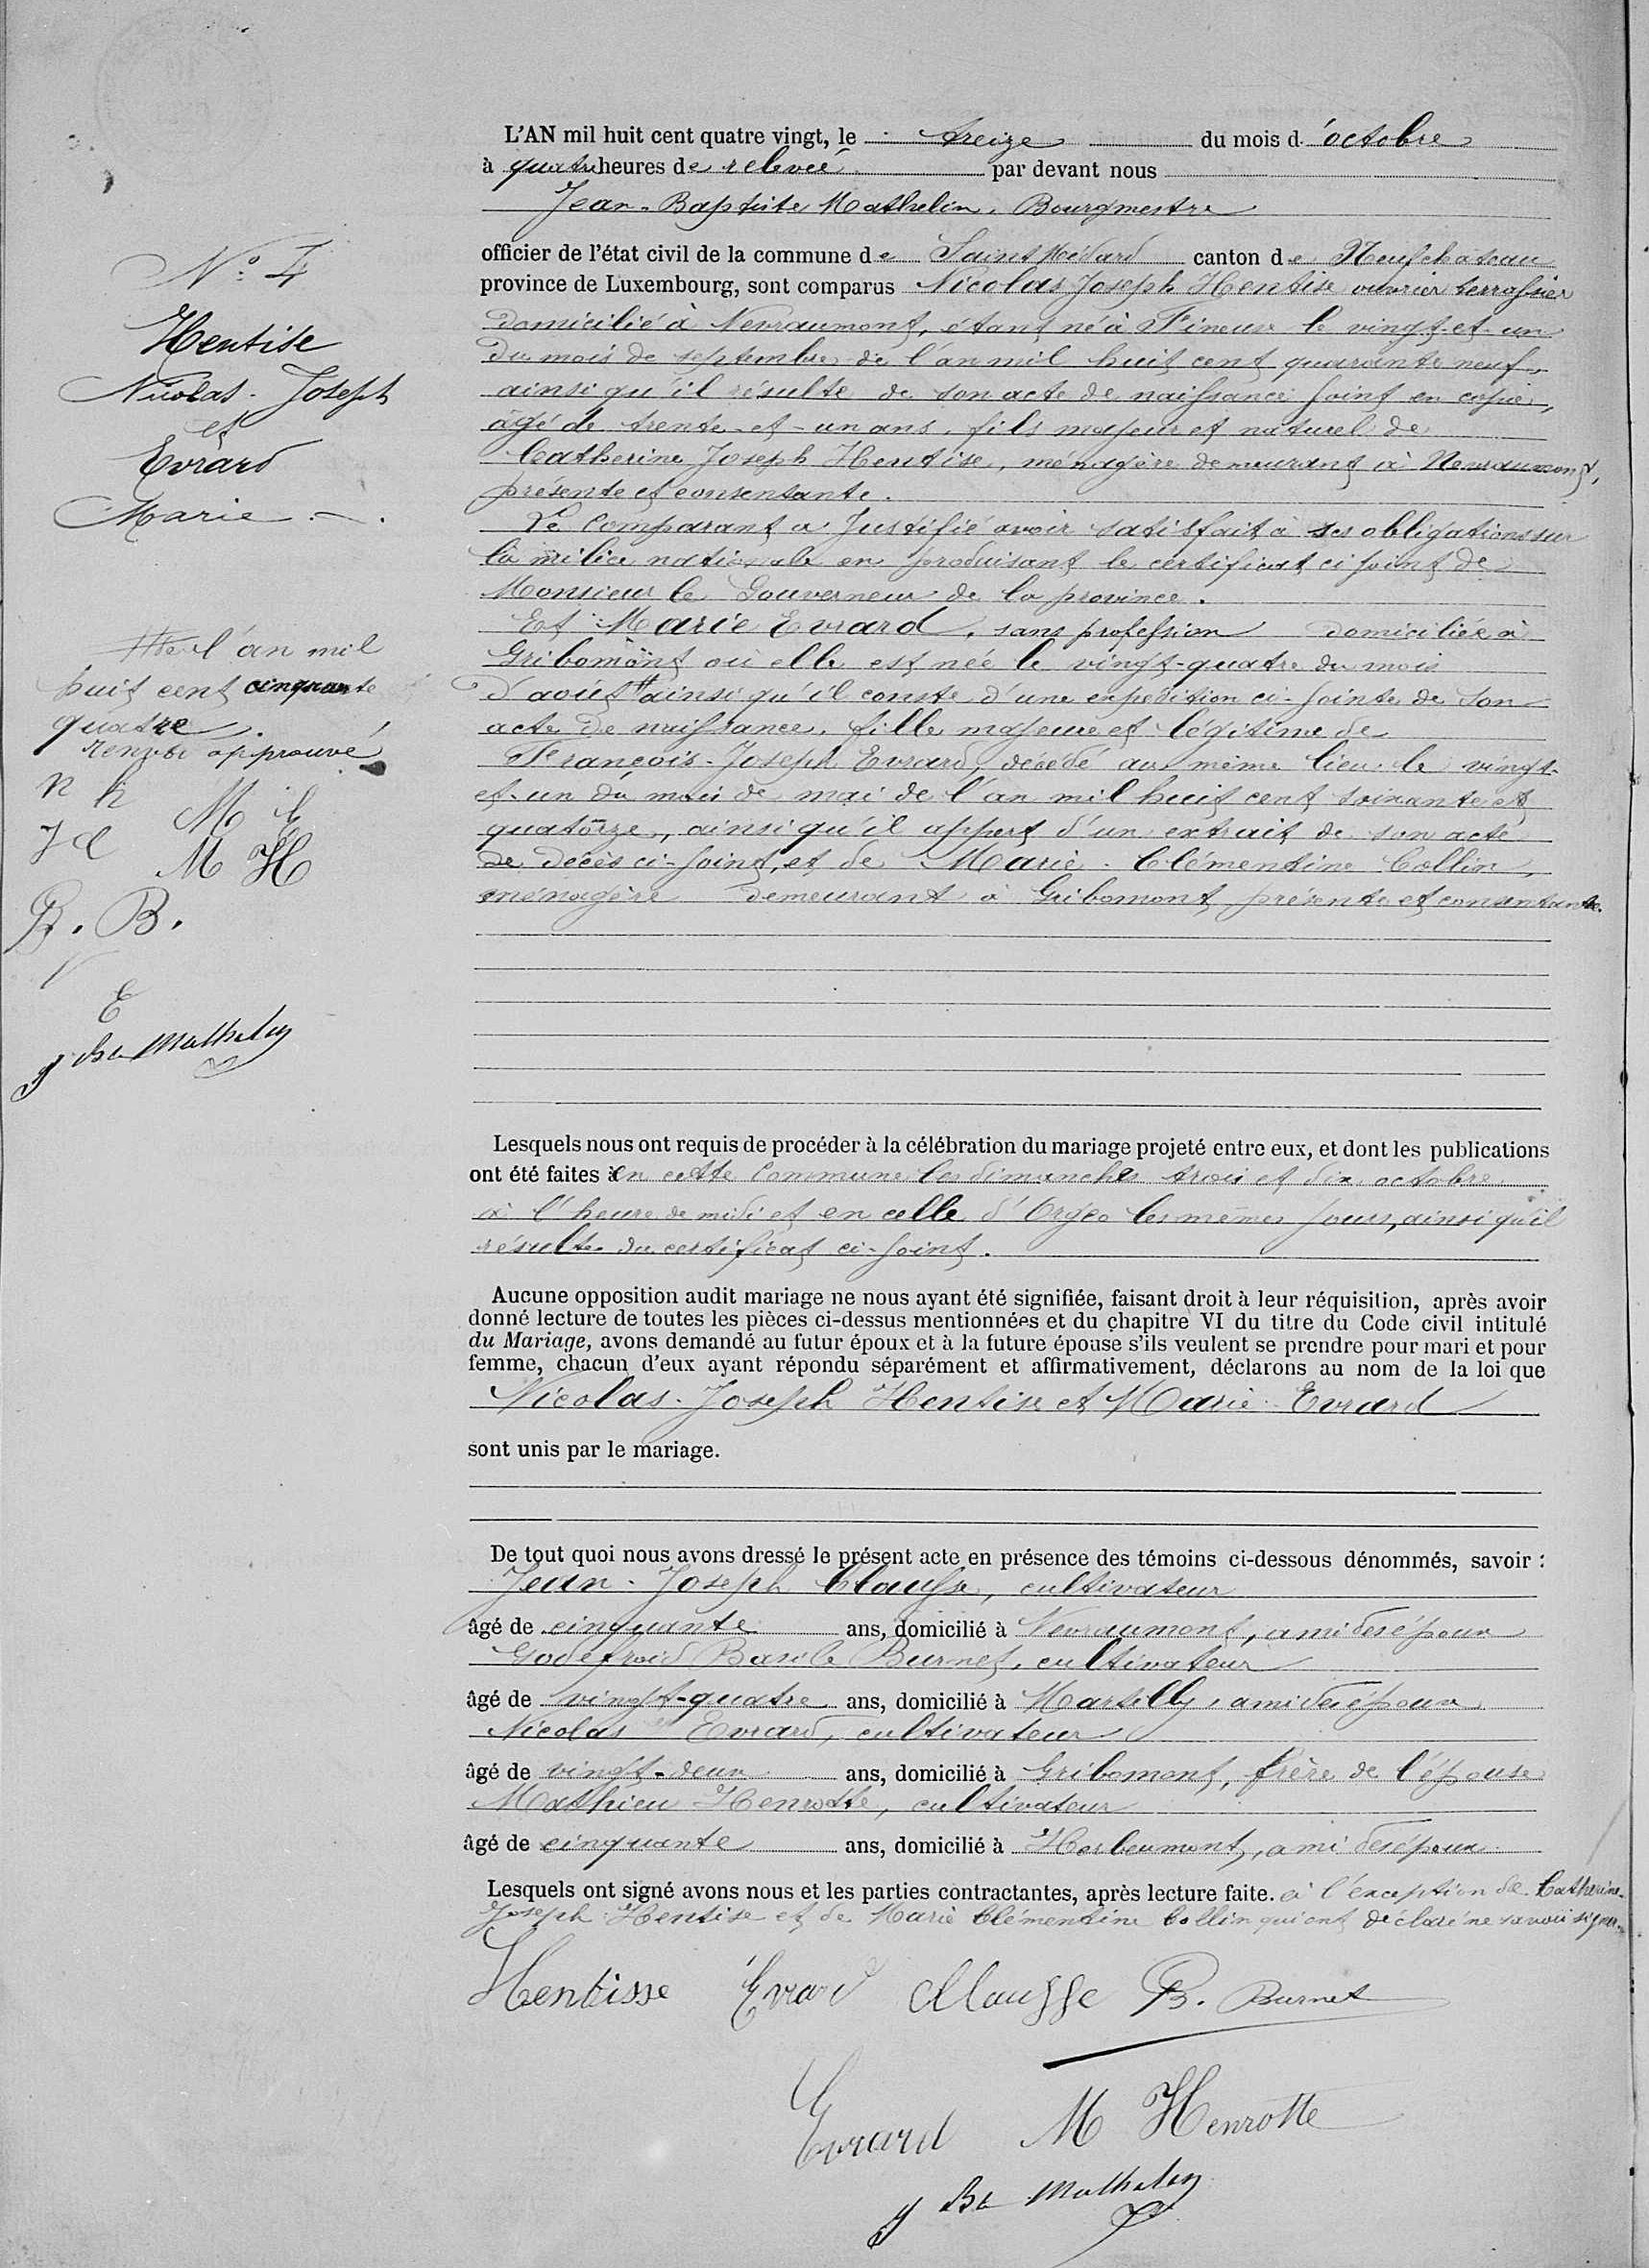 L'AN mil huit cent quatre vingt, le treize du mois d'octobre
à quatre heures de relevée par devant nous
Jean-Baptiste Mathelin, Bourgmestre
officier de l'état civil de la commune de Saint Médard canton de Neufchâteau
province de Luxembourg, sont comparus Nicolas Joseph Hentise ouvrier terrassier
domicilié à Nevraumont, étant né à Fineuse le vingt-et-un
du mois de septembre de l'an mil huit cent quarante neuf,
ainsi qu'il résulte de son acte de naissance joint en copie,
âgé de trente-et-un ans, fils majeur et naturel de
Catherine Joseph Hentise, ménagère demeurant à Nevraumont,
présente et consentante.
Le Comparant a Justifié avoir satisfait à ses obligations sur
la milice nationale en produisant le certificat ci joint de
Monsieur le Gouverneur de la province.
Et Marie Evrard, sans profession domiciliée à
Gribomont où elle est née le vingt-quatre du mois
d'août # ainsi qu'il conste d'une expédition ci-jointe de son
acte de naissance, fille majeure et légitime de
François-Joseph Evrard, décédé au même lieu le vingt-
et-un du mois de mai de l'an mil huit cent soixante et
quatorze, ainsi qu'il appert d'un extrait de son acte
de décès ci-joint, et de Marie-Clémentine Collin,
ménagère demeurant à Gribomont, présente et consentante.
N° 4
Hentise
Nicolas-Joseph
et
Evrard
Marie
# de l'an mil
huit cent cinquante
quatre.
renvoi approuvé
n h
M E
J C
M H
B. B.
E
J Bte Mathelin
Lesquels nous ont requis de procéder à la célébration du mariage projeté entre eux, et dont les publications
ont été faites en cette Commune les dimanches trois et dix octobre
à l'heure de midi et en celle d'Orgeo les mêmes jours, ainsi qu'il
résulte du certificat ci-joint.
Aucune opposition audit mariage ne nous ayant été signifiée, faisant droit à leur réquisition, après avoir
donné lecture de toutes les pièces ci-dessus mentionnées et du chapitre VI du titre du Code civil intitulé
du Mariage, avons demandé au futur époux et à la future épouse s'ils veulent se prendre pour mari et pour
femme, chacun d'eux ayant répondu séparément et affirmativement, déclarons au nom de la loi que
Nicolas-Joseph Hentise et Marie Evrard
sont unis par le mariage.
De tout quoi nous avons dressé le présent acte en présence des témoins ci-dessous dénommés, savoir :
Jean-Joseph Clausse, cultivateur
âgé de cinquante ans, domicilié à Nevraumont, ami des époux
Godefroid Basile Burnet, cultivateur
âgé de vingt-quatre ans, domicilié à Martilly, ami des époux
Nicolas Evrard, cultivateur
âgé de vingt-deux ans, domicilié à Gribomont, frère de l'épouse
Mathieu Henrotte, cultivateur
âgé de cinquante ans, domicilié à Herbeumont, ami des époux
Lesquels ont signé avons nous et les parties contractantes, après lecture faite. à l'exception de Catherine-
Joseph Hentise et de Marie Clémentine Collin qui ont déclaré ne savoir signer.
Hentisse Evrard Clausse B. Burnet
Evrard M Henrotte
J Bte Mathelin